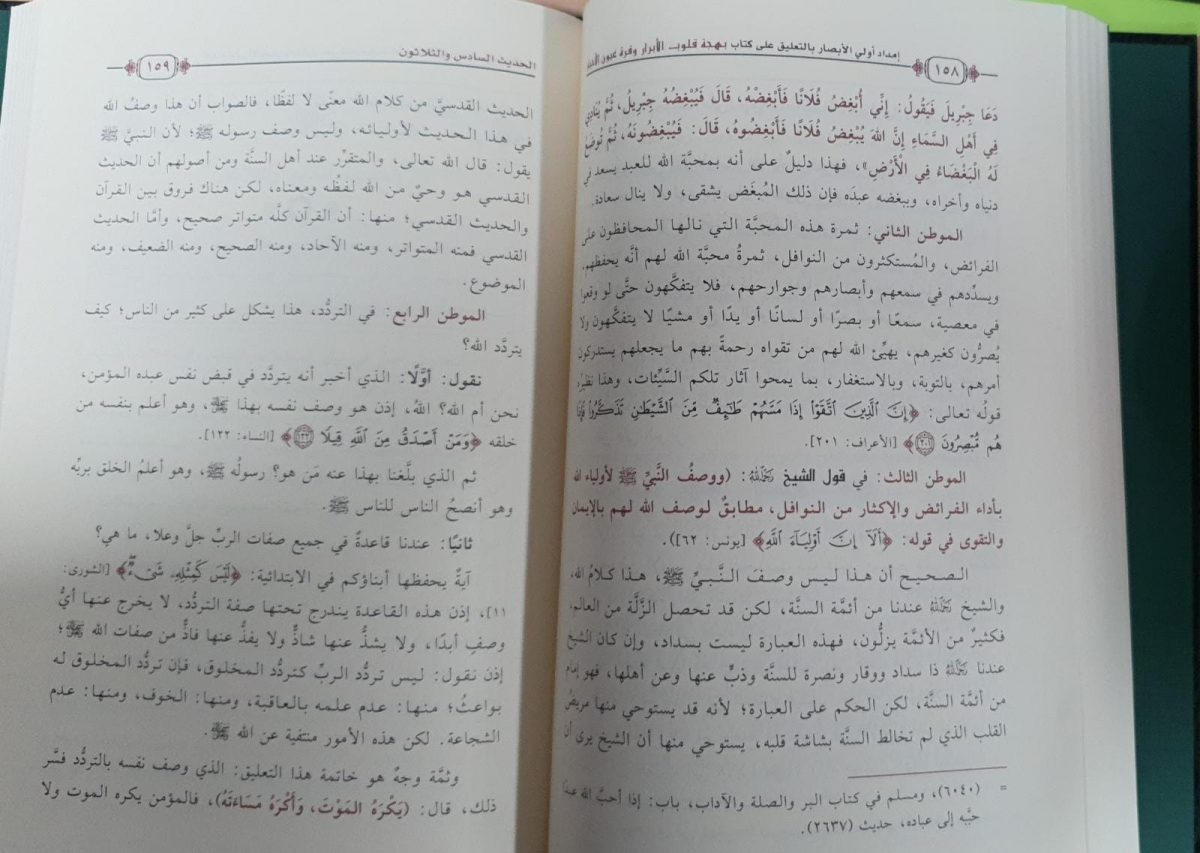 إمداد أولي الأبصار بالتعليق على كتاب بهجة قلوب الأبرار وقرة عيون
١٥٨
دَعَا جِبْرِيلَ فَيَقُولُ: إِنِّي أُبْغِضُ فُلَانًا فَأَبْغِضْهُ، قَالَ فَيُبْغِضُهُ جِبْرِيلُ، ثُمَّ يُنَادِي
فِي أَهْلِ السَّمَاءِ إِنَّ اللهَ يُبْغِضُ فُلَانًا فَأَبْغِضُوهُ، قَالَ: فَيُبْغِضُونَهُ، ثُمَّ تُوضَعُ
لَهُ الْبَغْضَاءُ فِي الْأَرْضِ»، فهذا دليلٌ على أنه بمحبَّة الله للعبد يسعد في
دنياه وأخراه، وببغضه عبدَه فإن ذلك المُبغَض يشقى، ولا ينال سعادة.
الموطن الثاني: ثمرة هذه المحبَّة التي نالها المحافظون على
الفرائض، والمُستكثرون من النوافل، ثمرةُ محبَّة الله لهم أنَّه يحفظهم،
ويسدِّدهم في سمعهم وأبصارهم وجوارحهم، فلا يتفكَّهون حتَّى لو وقعوا
في معصية، سمعًا أو بصرًا أو لسانًا أو يدًا أو مشيًا لا يتفكَّهون ولا
يُصرُّون كغيرهم، يهيِّئ الله لهم من تقواه رحمةً بهم ما يجعلهم يستدركون
أمرهم، بالتوبة، وبالاستغفار، بما يمحوا آثار تلكم السَّيِّئات، وهذا نظيرُه
قولُه تعالى: ﴿إِنَّ الَّذِينَ اتَّقَوْا إِذَا مَسَّهُمْ طَائِفٌ مِّنَ الشَّيْطَانِ تَذَكَّرُوا فَإِذَا
هُم مُّبْصِرُونَ ۝٢٠١﴾ [الأعراف: ٢٠١].
الموطن الثالث: في قول الشيخ رَحِمَهُ اللهُ: (ووصفُ النَّبيِّ ﷺ لأولياء الله
بأداء الفرائض والإكثار من النوافل، مطابقٌ لوصف الله لهم بالإيمان
والتقوى في قوله: ﴿أَلَا إِنَّ أَوْلِيَاءَ اللَّهِ﴾ [يونس: ٦٢]).
الصحيح أن هذا ليس وصفَ النَّبيِّ ﷺ، هذا كلامُ الله،
والشيخ رَحِمَهُ اللهُ عندنا من أئمَّة السنَّة، لكن قد تحصل الزَّلَّة من العالم،
فكثيرٌ من الأئمَّة يزلُّون، فهذه العبارة ليست بسداد، وإن كان الشيخ
عندنا رَحِمَهُ اللهُ ذا سداد ووقار ونصرة للسنَّة وذبٍّ عنها وعن أهلها، فهو إمام
من أئمة السنَّة، لكن الحكم على العبارة؛ لأنه قد يستوحي منها مريضُ
القلب الذي لم تخالط السنَّة بشاشة قلبه، يستوحي منها أن الشيخ يرى أن
= (٦٠٤٠)، ومسلم في كتاب البر والصلة والآداب، باب: إذا أحبَّ الله عبدًا
حبَّبه إلى عباده، حديث (٢٦٣٧).
الحديث السادس والثلاثون
١٥٩
الحديث القدسيَّ من كلام الله معنًى لا لفظًا، فالصواب أن هذا وصفُ الله
في هذا الحديث لأوليائه، وليس وصف رسوله ﷺ؛ لأن النبيَّ ﷺ
يقول: قال الله تعالى، والمتقرِّر عند أهل السنَّة ومن أصولهم أن الحديث
القدسي هو وحيٌ من الله لفظُه ومعناه، لكن هناك فروق بين القرآن
والحديث القدسي؛ منها: أن القرآن كلَّه متواتر صحيح، وأمَّا الحديث
القدسي فمنه المتواتر، ومنه الآحاد، ومنه الصحيح، ومنه الضعيف، ومنه
الموضوع.
الموطن الرابع: في التردُّد، هذا يشكل على كثير من الناس؛ كيف
يتردَّد الله؟
نقول: أوَّلًا: الذي أخبر أنه يتردَّد في قبض نفس عبده المؤمن،
نحن أم الله؟ اللهُ، إذن هو وصف نفسه بهذا ﷻ، وهو أعلم بنفسه من
خلقه ﴿وَمَنْ أَصْدَقُ مِنَ اللَّهِ قِيلًا ۝١٢٢﴾ [النساء: ١٢٢].
ثم الذي بلَّغنا بهذا عنه مَن هو؟ رسولُه ﷺ، وهو أعلمُ الخلق بربِّه
وهو أنصحُ الناس للناس ﷺ.
ثانيًا: عندنا قاعدةٌ في جميع صفات الربِّ جلَّ وعلا، ما هي؟
آيةٌ يحفظها أبناؤكم في الابتدائية: ﴿لَيْسَ كَمِثْلِهِ شَيْءٌ﴾ [الشورى:
١١]، إذن هذه القاعدة يندرج تحتها صفة التردُّد، لا يخرج عنها أيُّ
وصفٍ أبدًا، ولا يشذُّ عنها شاذٌّ ولا يفذُّ عنها فاذٌّ من صفات الله ﷻ؛
إذن نقول: ليس تردُّد الربِّ كتردُّد المخلوق، فإن تردُّد المخلوق له
بواعثُ؛ منها: عدم علمه بالعاقبة، ومنها: الخوف، ومنها: عدم
الشجاعة. لكن هذه الأمور منتفية عن الله ﷻ.
وثمَّة وجهٌ هو خاتمة هذا التعليق: الذي وصف نفسه بالتردُّد فسَّر
ذلك، قال: (يَكْرَهُ المَوْتَ، وَأَكْرَهُ مَسَاءَتَهُ)، فالمؤمن يكره الموت ولا